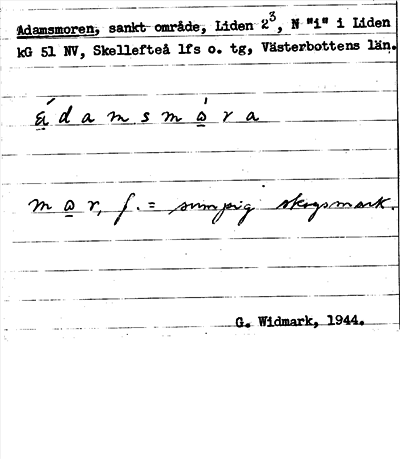 Adamsmoren, sankt område, Liden 2³, N "i" i Liden
kG 51 NV, Skellefteå lfs o. tg, Västerbottens län.
á̲damsmώ̲ra
mω̲r, f. = sumpig skogsmark.
G. Widmark, 1944.